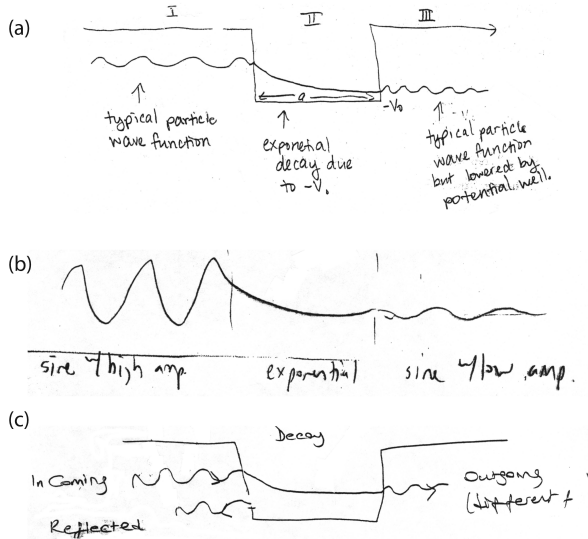 (a)
I II III
a
-V₀
typical particle
wave function
exponetial
decay due
to -V₀
typical particle
wave function
but lowered by
potential well.
(b)
sine w/high amp.
exponential
sine w/low amp.
(c)
Decay
In Coming
Reflected
Outgoing
(different